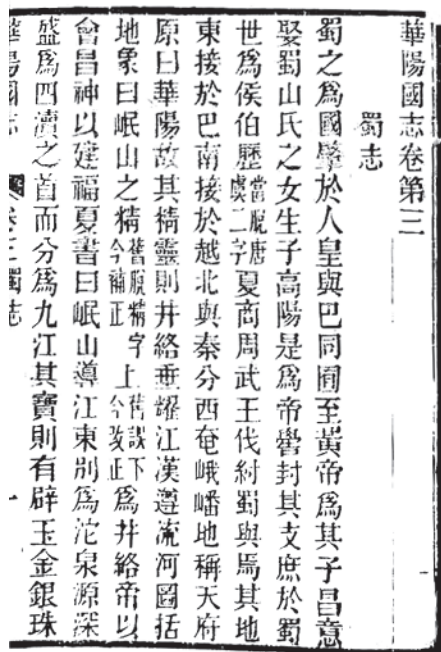 華陽國志卷第三
蜀志
蜀之爲國肇於人皇與巴同囿至黃帝爲其子昌意
娶蜀山氏之女生子高陽是爲帝嚳封其支庶於蜀
世爲侯伯歷當脫唐虞二字夏商周武王伐紂蜀與焉其地
東接於巴南接於越北與秦分西奄峨嶓地稱天府
原曰華陽故其精靈則井絡垂耀江漢遵流河圖括
地象曰岷山之精舊脫精字今補正上舊誤下今改正爲井絡帝以
會昌神以建福夏書曰岷山導江東別爲沱泉源深
盛爲四瀆之首而分爲九江其寶則有辟玉金銀珠
華陽國志 卷三蜀志 一